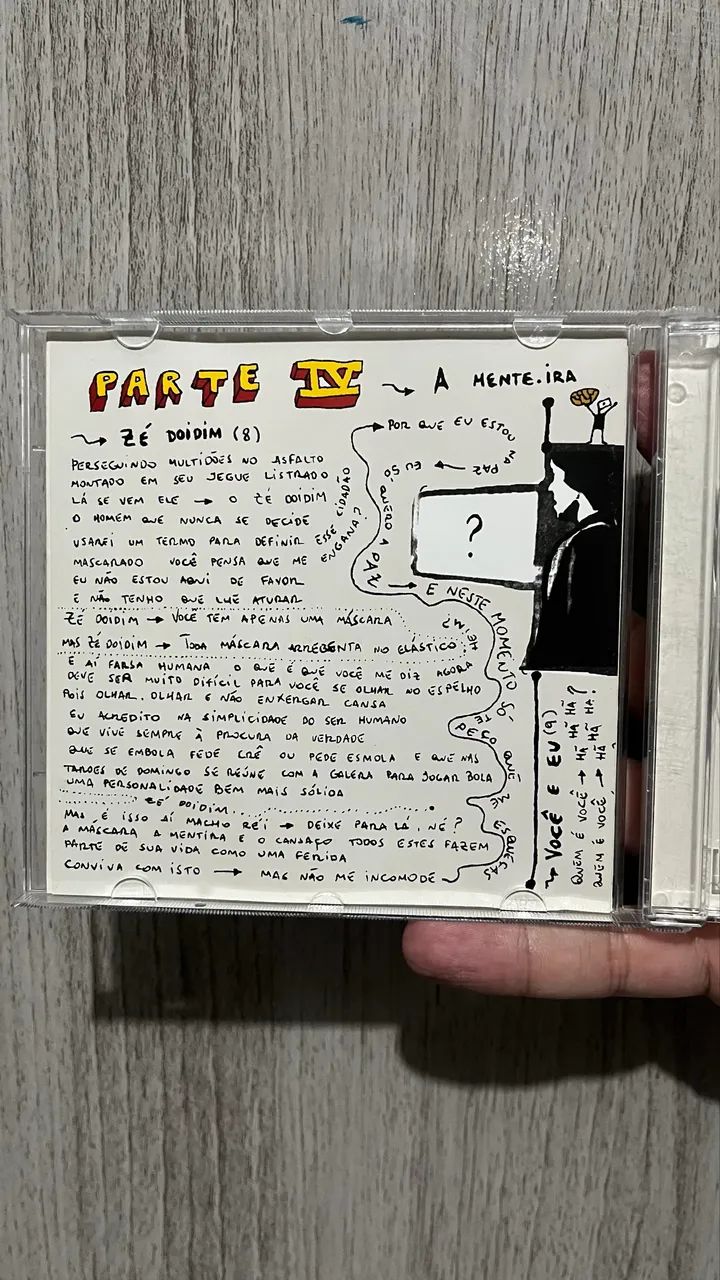 PARTE IV → A MENTE.IRA
→ ZÉ DOIDIM (8)
PERSEGUINDO MULTIDÕES NO ASFALTO
MONTADO EM SEU JEGUE LISTRADO
LÁ SE VEM ELE → O ZÉ DOIDIM
O HOMEM QUE NUNCA SE DECIDE
USAREI UM TERMO PARA DEFINIR ESSE CIDADÃO
MASCARADO VOCÊ PENSA QUE ME ENGANA?
EU NÃO ESTOU AQUI DE FAVOR
E NÃO TENHO QUE LHE ATURAR
ZÉ DOIDIM → VOCÊ TEM APENAS UMA MÁSCARA
MAS ZÉ DOIDIM → TODA MÁSCARA ARREBENTA NO ELÁSTICO
E AÍ FARSA HUMANA O QUE É QUE VOCÊ ME DIZ AGORA HEIM?
DEVE SER MUITO DIFÍCIL PARA VOCÊ SE OLHAR NO ESPELHO
POIS OLHAR, OLHAR E NÃO ENXERGAR CANSA
EU ACREDITO NA SIMPLICIDADE DO SER HUMANO
QUE VIVE SEMPRE À PROCURA DA VERDADE
QUE SE EMBOLA FEDE CRÊ OU PEDE ESMOLA E QUE NAS
TARDES DE DOMINGO SE REÚNE COM A GALERA PARA JOGAR BOLA
UMA PERSONALIDADE BEM MAIS SÓLIDA
ZÉ DOIDIM
MAS É ISSO AÍ MACHO RÉI → DEIXE PARA LÁ, NÉ?
A MÁSCARA A MENTIRA E O CANSAÇO TODOS ESTES FAZEM
PARTE DE SUA VIDA COMO UMA FERIDA
CONVIVA COM ISTO → MAS NÃO ME INCOMODE
POR QUE EU ESTOU NA PAZ
← EU SÓ QUERO A PAZ
→ E NESTE MOMENTO SÓ TE PEÇO QUE ME ESQUEÇAS
?
→ VOCÊ E EU (9)
QUEM É VOCÊ → HÃ HÃ HÃ?
QUEM É VOCÊ → HÃ HÃ HÃ!